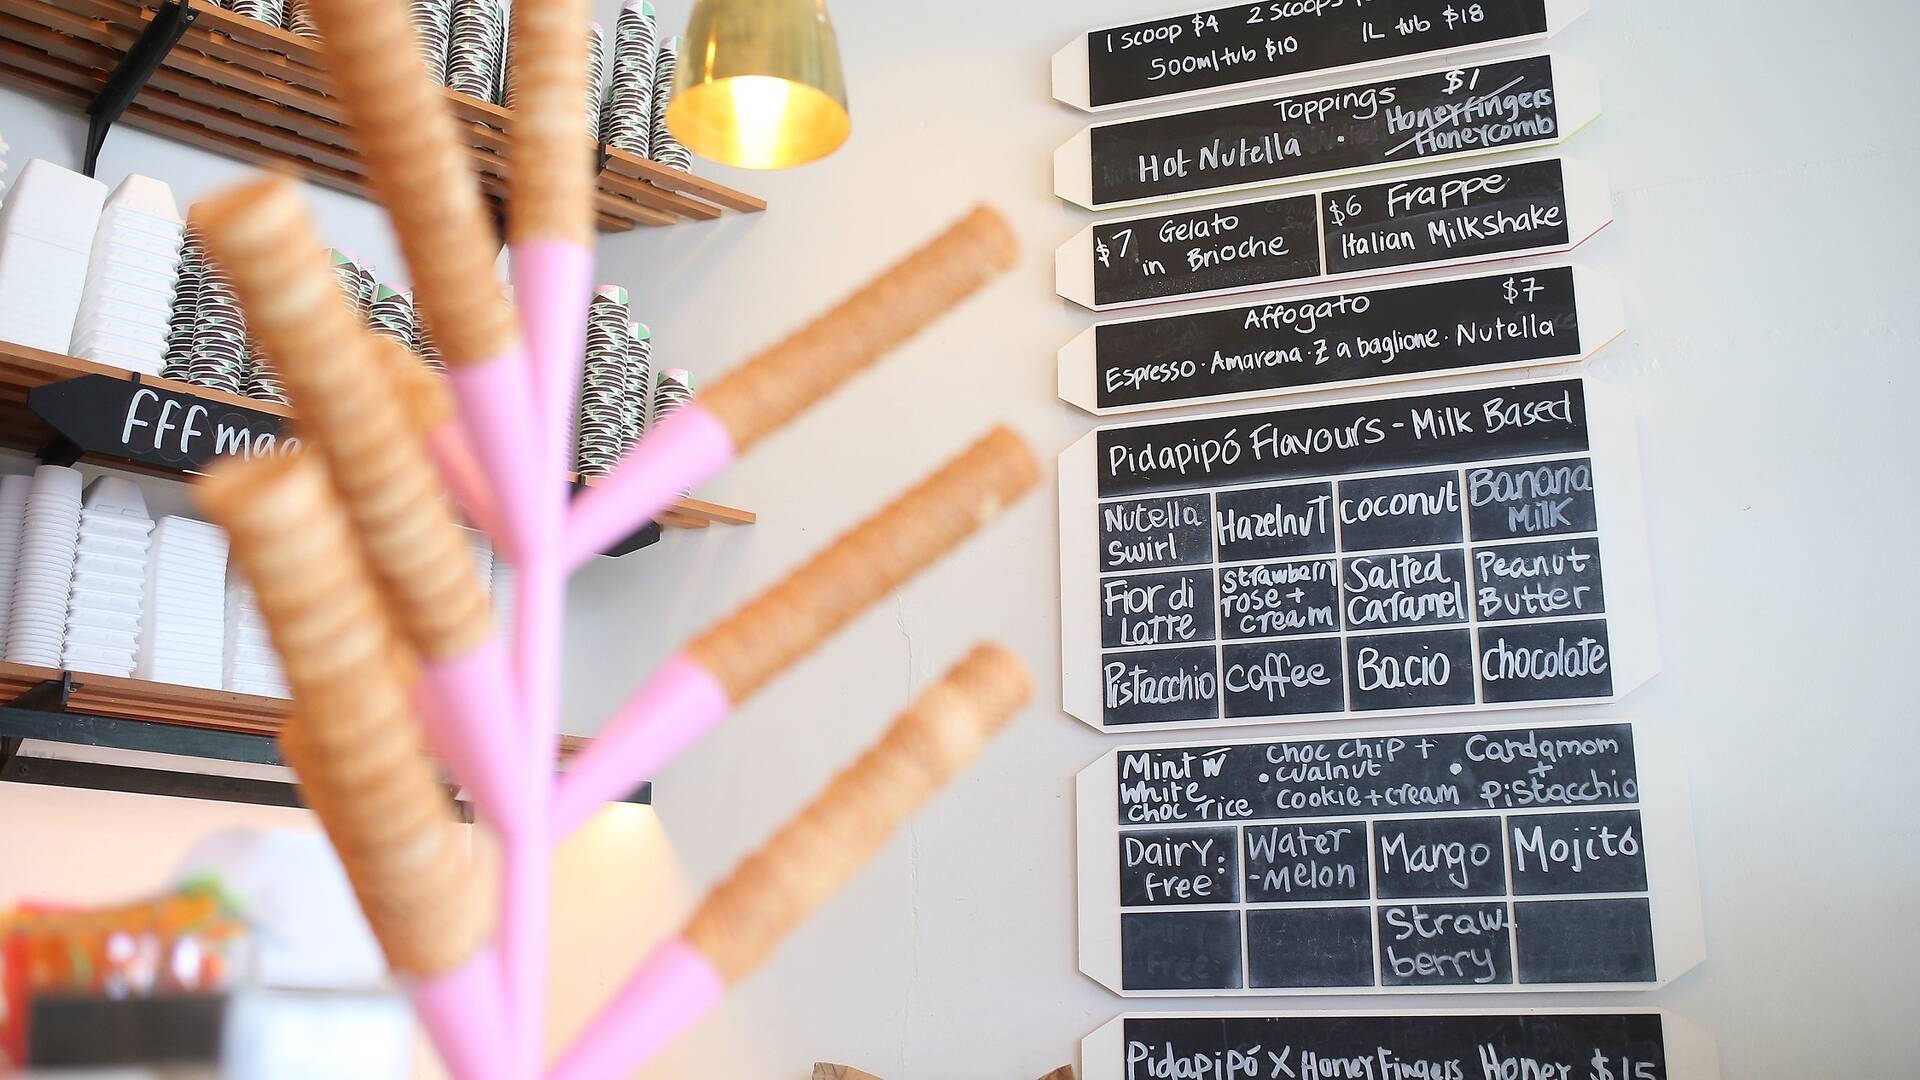 1 scoop $4 2 scoops
500ml tub $10 1L tub $18
Toppings $1
Hot Nutella · Honeyfingers
Honeycomb
$7 Gelato
in Brioche
$6 Frappe
Italian Milkshake
Affogato $7
Espresso · Amarena · Zabaglione · Nutella
Pidapipó Flavours - Milk Based
Nutella
Swirl
Hazelnut
Coconut
Banana
Milk
Fior di
Latte
Strawberry
rose +
cream
Salted
Caramel
Peanut
Butter
Pistachio
Coffee
Bacio
Chocolate
Mint w
White
choc rice
· choc chip +
walnut
cookie + cream
· Cardamom
+
Pistacchio
Dairy
free:
Water
-Melon
Mango
Mojito
Straw-
berry
Pidapipó X Honey Fingers Honey $15
fff